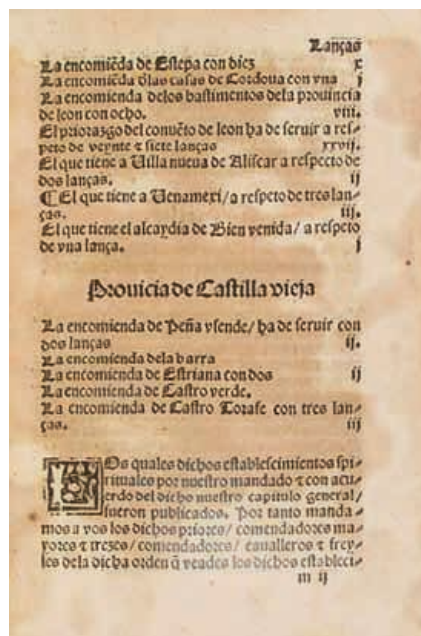 Lanças
La encomiẽda de Estepa con diez x
La encomiẽda dlas casas de Cordoua con vna j
La encomienda delos bastimentos dela prouincia
de leon con ocho. viij.
El priorazgo del conuẽto de leon ha de seruir a res-
peto de veynte τ siete lanças xxvij.
El que tiene a Uilla nueua de Aliscar a respecto de
dos lanças. ij
¶ El que tiene a Uenamexi/a respeto de tres lan-
ças. iij.
El que tiene el alcaydia de Bien venida/ a respeto
de vna lança. j
Prouicia de Castilla vieja
La encomienda de Peña vsende/ ha de seruir con
dos lanças ij.
La encomienda dela barra
La encomienda de Estriana con dos ij
La encomienda de Castro verde.
La encomienda de Castro Torafe con tres lan-
ças. iij
LOs quales dichos establescimientos spi-
rituales por nuestro mandado τ con acu-
erdo del dicho nuestro capitulo general/
fueron publicados. Por tanto manda-
mos a vos los dichos priores/ comendadores ma-
yores τ trezes/ comendadores/ caualleros τ frey-
les dela dicha orden q̃ veades los dichos estableci-
m ij